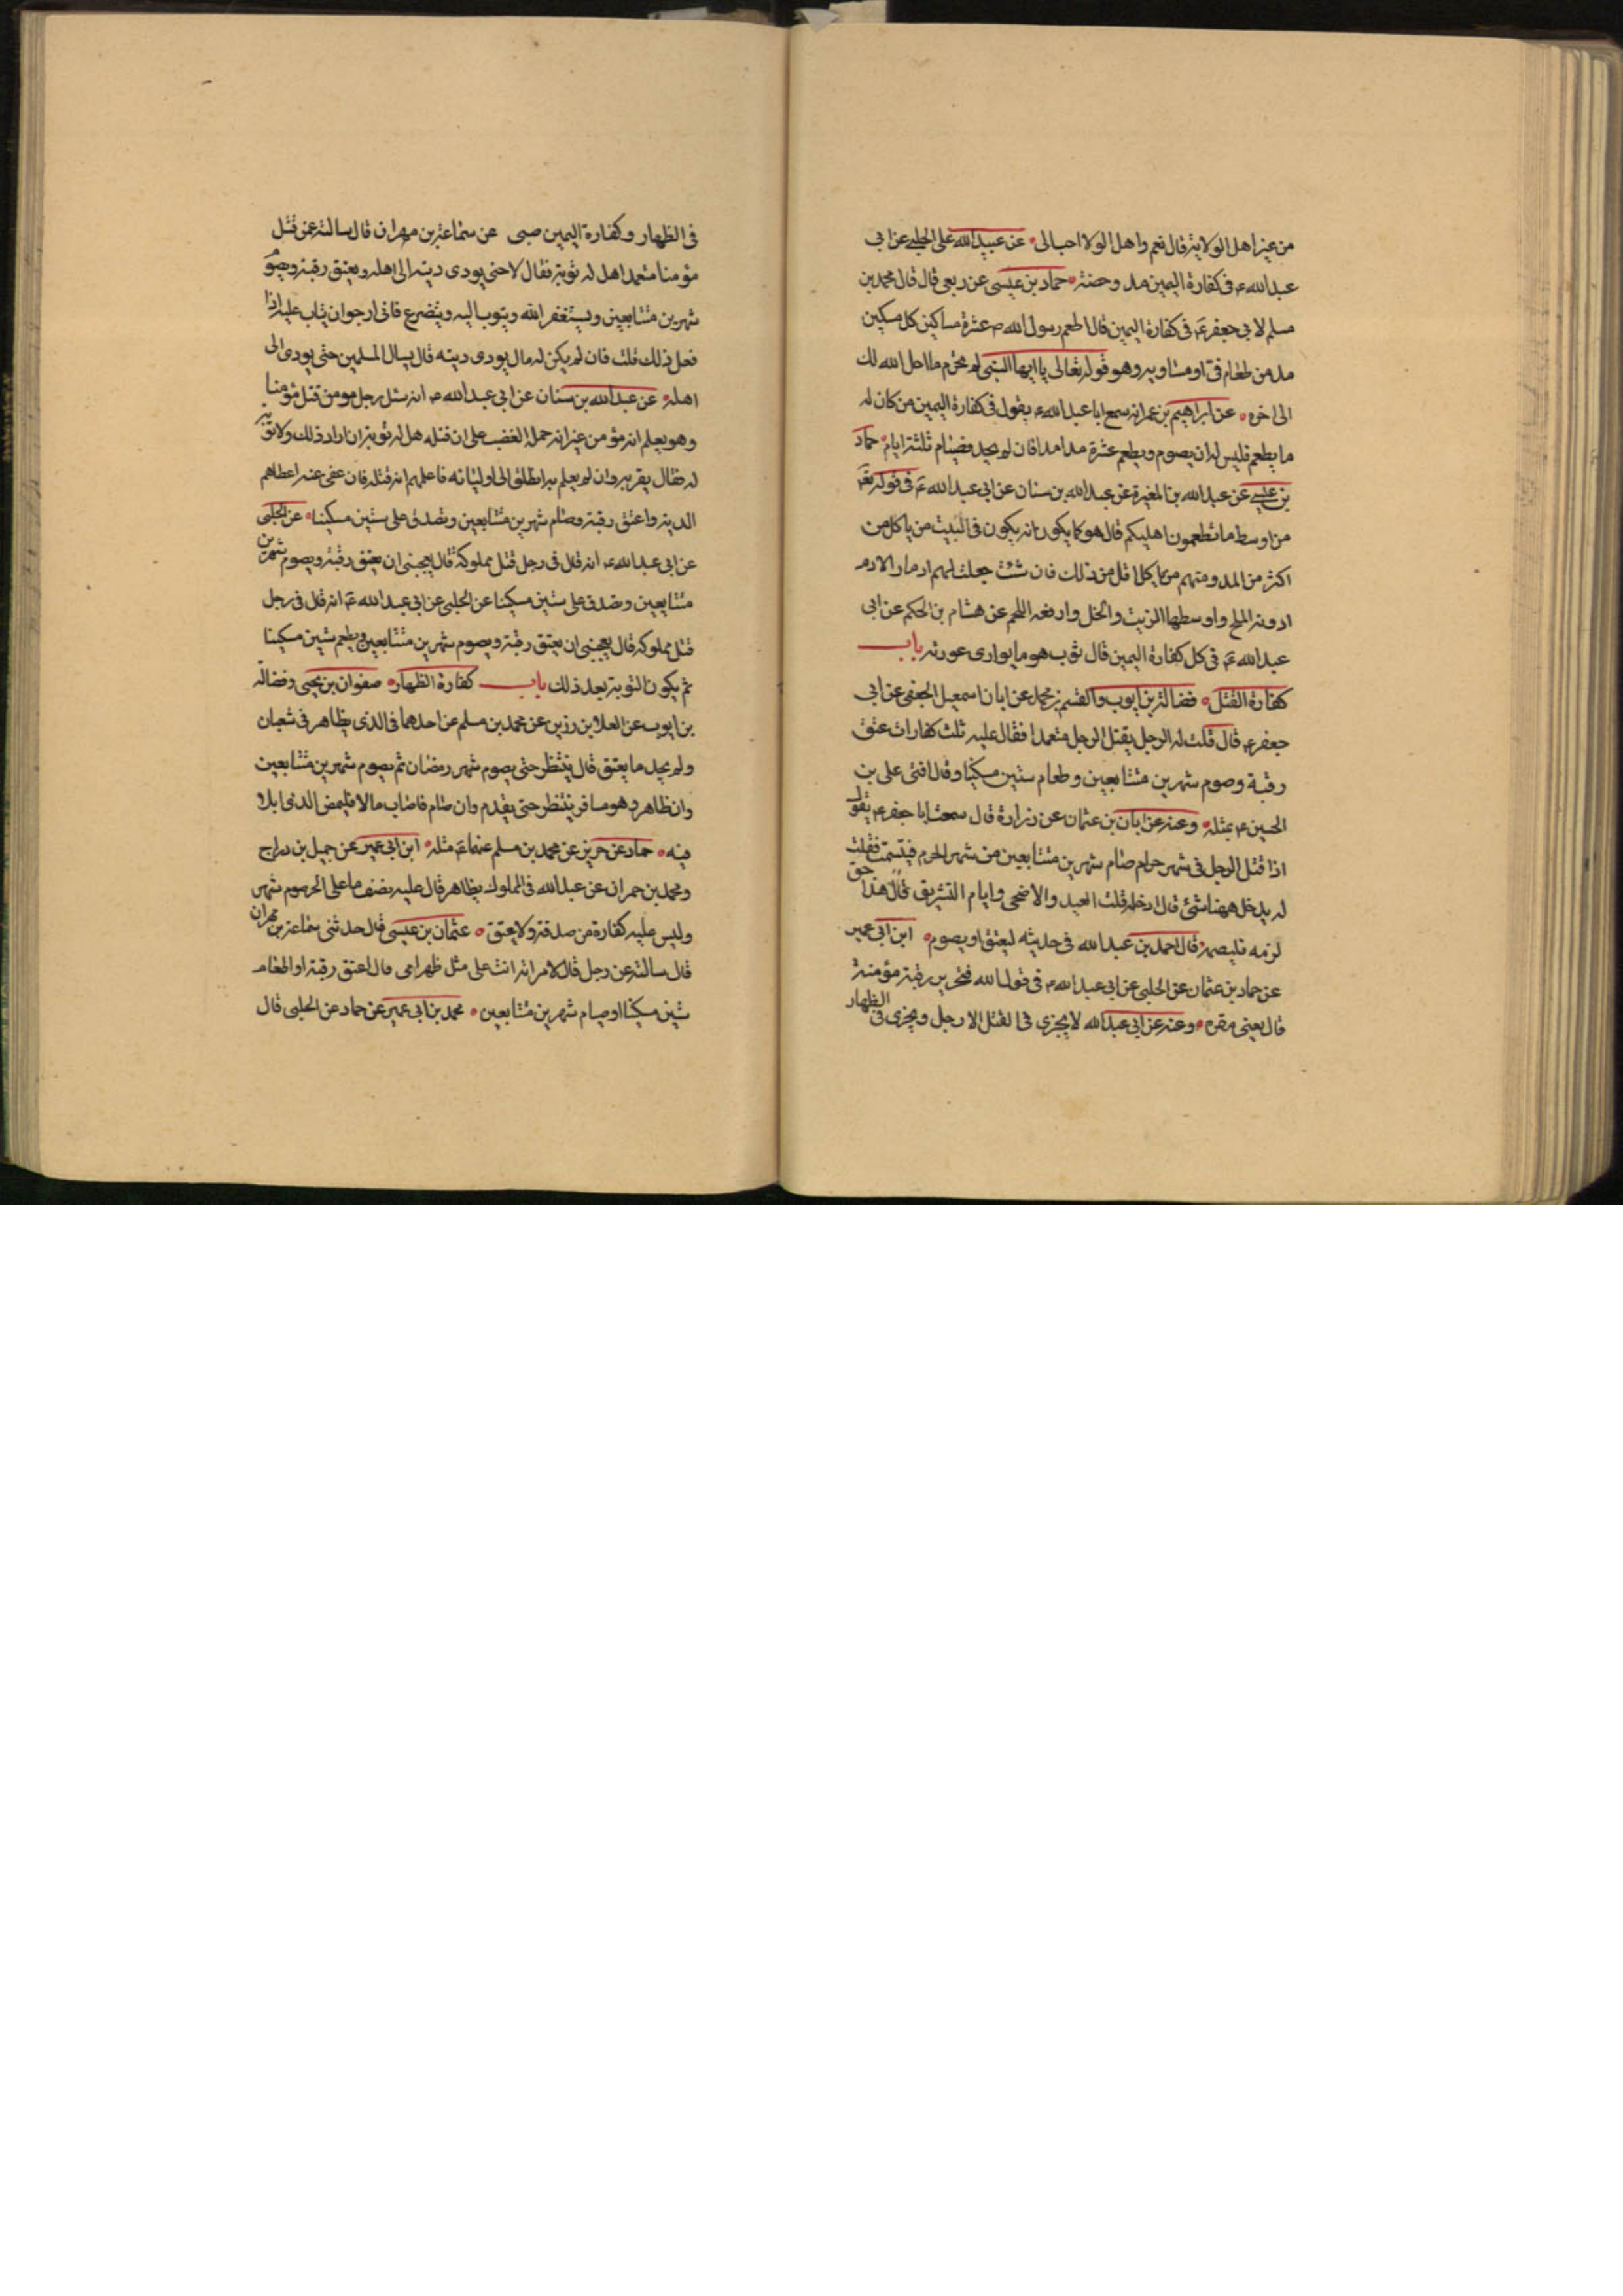 من غير اهل الولاية قال نعم واهل الولا احب الى عن عبيد الله على الحلبي عن ابي
عبد الله ع في كفارة اليمين مد وحفنة حماد بن عيسى عن ربعي قال قال محمد بن
مسلم لابي جعفر ع في كفارة اليمين قال اطعم رسول الله ص عشرة مساكين كل مسكين
مد من طعام في وهو قوله تعالى يا ايها النبي لم تحرم ما احل الله لك
الى اخره عن ابراهيم بن عمر انه سمع ابا عبد الله ع يقول في كفارة اليمين من كان له
ما يطعم فليس له ان يصوم ويطعم عشرة مدا مدا فان لم يجد فصيام ثلثة ايام حماد
بن عيسى عن عبد الله بن المغيرة عن عبد الله بن سنان عن ابي عبد الله ع في قوله تع
من اوسط ما تطعمون اهليكم قال هو كما يكون انه يكون في البيت من ياكل من
اكثر من المد ومنهم من ياكل اقل من ذلك فان شئت جعلت لهم ادما والادم
ادونه الملح واوسطها الزيت والخل وارفعه اللحم عن هشام بن الحكم عن ابي
عبد الله ع في كل كفارة اليمين قال ثوب هو ما يوارى عورته باب
كفارة القتل فضالة بن ايوب والقسم بن محمد عن ابان اسمعيل الجعفي عن ابي
جعفر ع قال قلت له الرجل يقتل الرجل متعمدا فقال عليه ثلث كفارات عتق
رقبة وصوم شهرين متتابعين وطعام ستين مسكينا وقال افتى على بن
الحسين ع بمثله وعنه عن ابان بن عثمان عن زرارة قال سمعت ابا جعفر ع يقول
اذا قتل الرجل في شهر حرام صام شهرين متتابعين من شهر الحرم فتبسمت فقلت
له يدخل ههنا شئ قال ادخله قلت العيد والاضحى وايام التشريق قال هذا حق
لزمه فليصمه قال احمد بن عبد الله في حديثه ليعتق او يصوم ابن ابي عمير
عن حماد بن عثمان عن الحلبي عن ابي عبد الله ع في قول الله فتحرير رقبة مؤمنة
قال يعني مقره وعنه عن ابي عبد الله لا يجزى في القتل الا رجل ويجزى في الظهار
في الظهار وكفارة اليمين صبى عن سماعة بن مهران قال سالته عن قتل
مؤمنا متعمدا هل له توبة فقال لا حتى يودى ديته الى اهله ويعتق رقبة وصوم
شهرين متتابعين ويستغفر الله ويتوب اليه ويتضرع فانى ارجو ان يتاب عليه اذا
فعل ذلك قلت فان لم يكن له مال يودى ديته قال يسال المسلمين حتى يودى الى
اهله عن عبد الله بن سنان عن ابي عبد الله ع انه سئل رجل مومن قتل مؤمنا
وهو يعلم انه مؤمن غير انه حمله الغضب على ان قتله هل له توبة ان اراد ذلك ولا توبة
له فقال يقر به وان لم يعلم به انطلق الى اوليائه فاعلمهم انه قتله فان عفى عنه اعطاهم
الدية واعتق رقبة وصام شهرين متتابعين وتصدق على ستين مسكينا عن الحلبي
عن ابي عبد الله ع انه قال في رجل قتل مملوكه قال يعجبنى ان يعتق رقبة ويصوم شهرين
متتابعين وصدق على ستين مسكينا عن الحلبي عن ابي عبد الله ع انه قال في رجل
قتل مملوكه قال يعجبنى ان يعتق رقبة ويصوم شهرين متتابعين ويطعم ستين مسكينا
ثم يكون التوبة بعد ذلك باب كفارة الظهار صفوان بن يحيى وفضالة
بن ايوب عن العلا بن رزين عن محمد بن مسلم عن احدهما في الذى يظاهر في شعبان
ولم يجد ما يعتق قال ينتظر حتى يصوم شهر رمضان ثم يصوم شهرين متتابعين
وان ظاهر وهو مسافر ينتظر حتى يقدم وان صام فاصاب مالا فليمض الذى ابتدا
فيه حماد عن حريز عن محمد بن مسلم عنهما ع مثله ابن ابي عمير عن جميل بن دراج
ومحمد بن حمران عن عبد الله في المملوك يظاهر قال عليه نصف ما على الحر صوم شهر
وليس عليه كفارة من صدقة ولا يعتق عثمان بن عيسى قال حدثنى سماعة بن مهران
قال سالته عن رجل قال لامراته انت على مثل ظهر امى قال اعتق رقبة او اطعام
ستين مسكينا او صيام شهرين متتابعين محمد بن ابي عمير عن حماد عن الحلبي قال